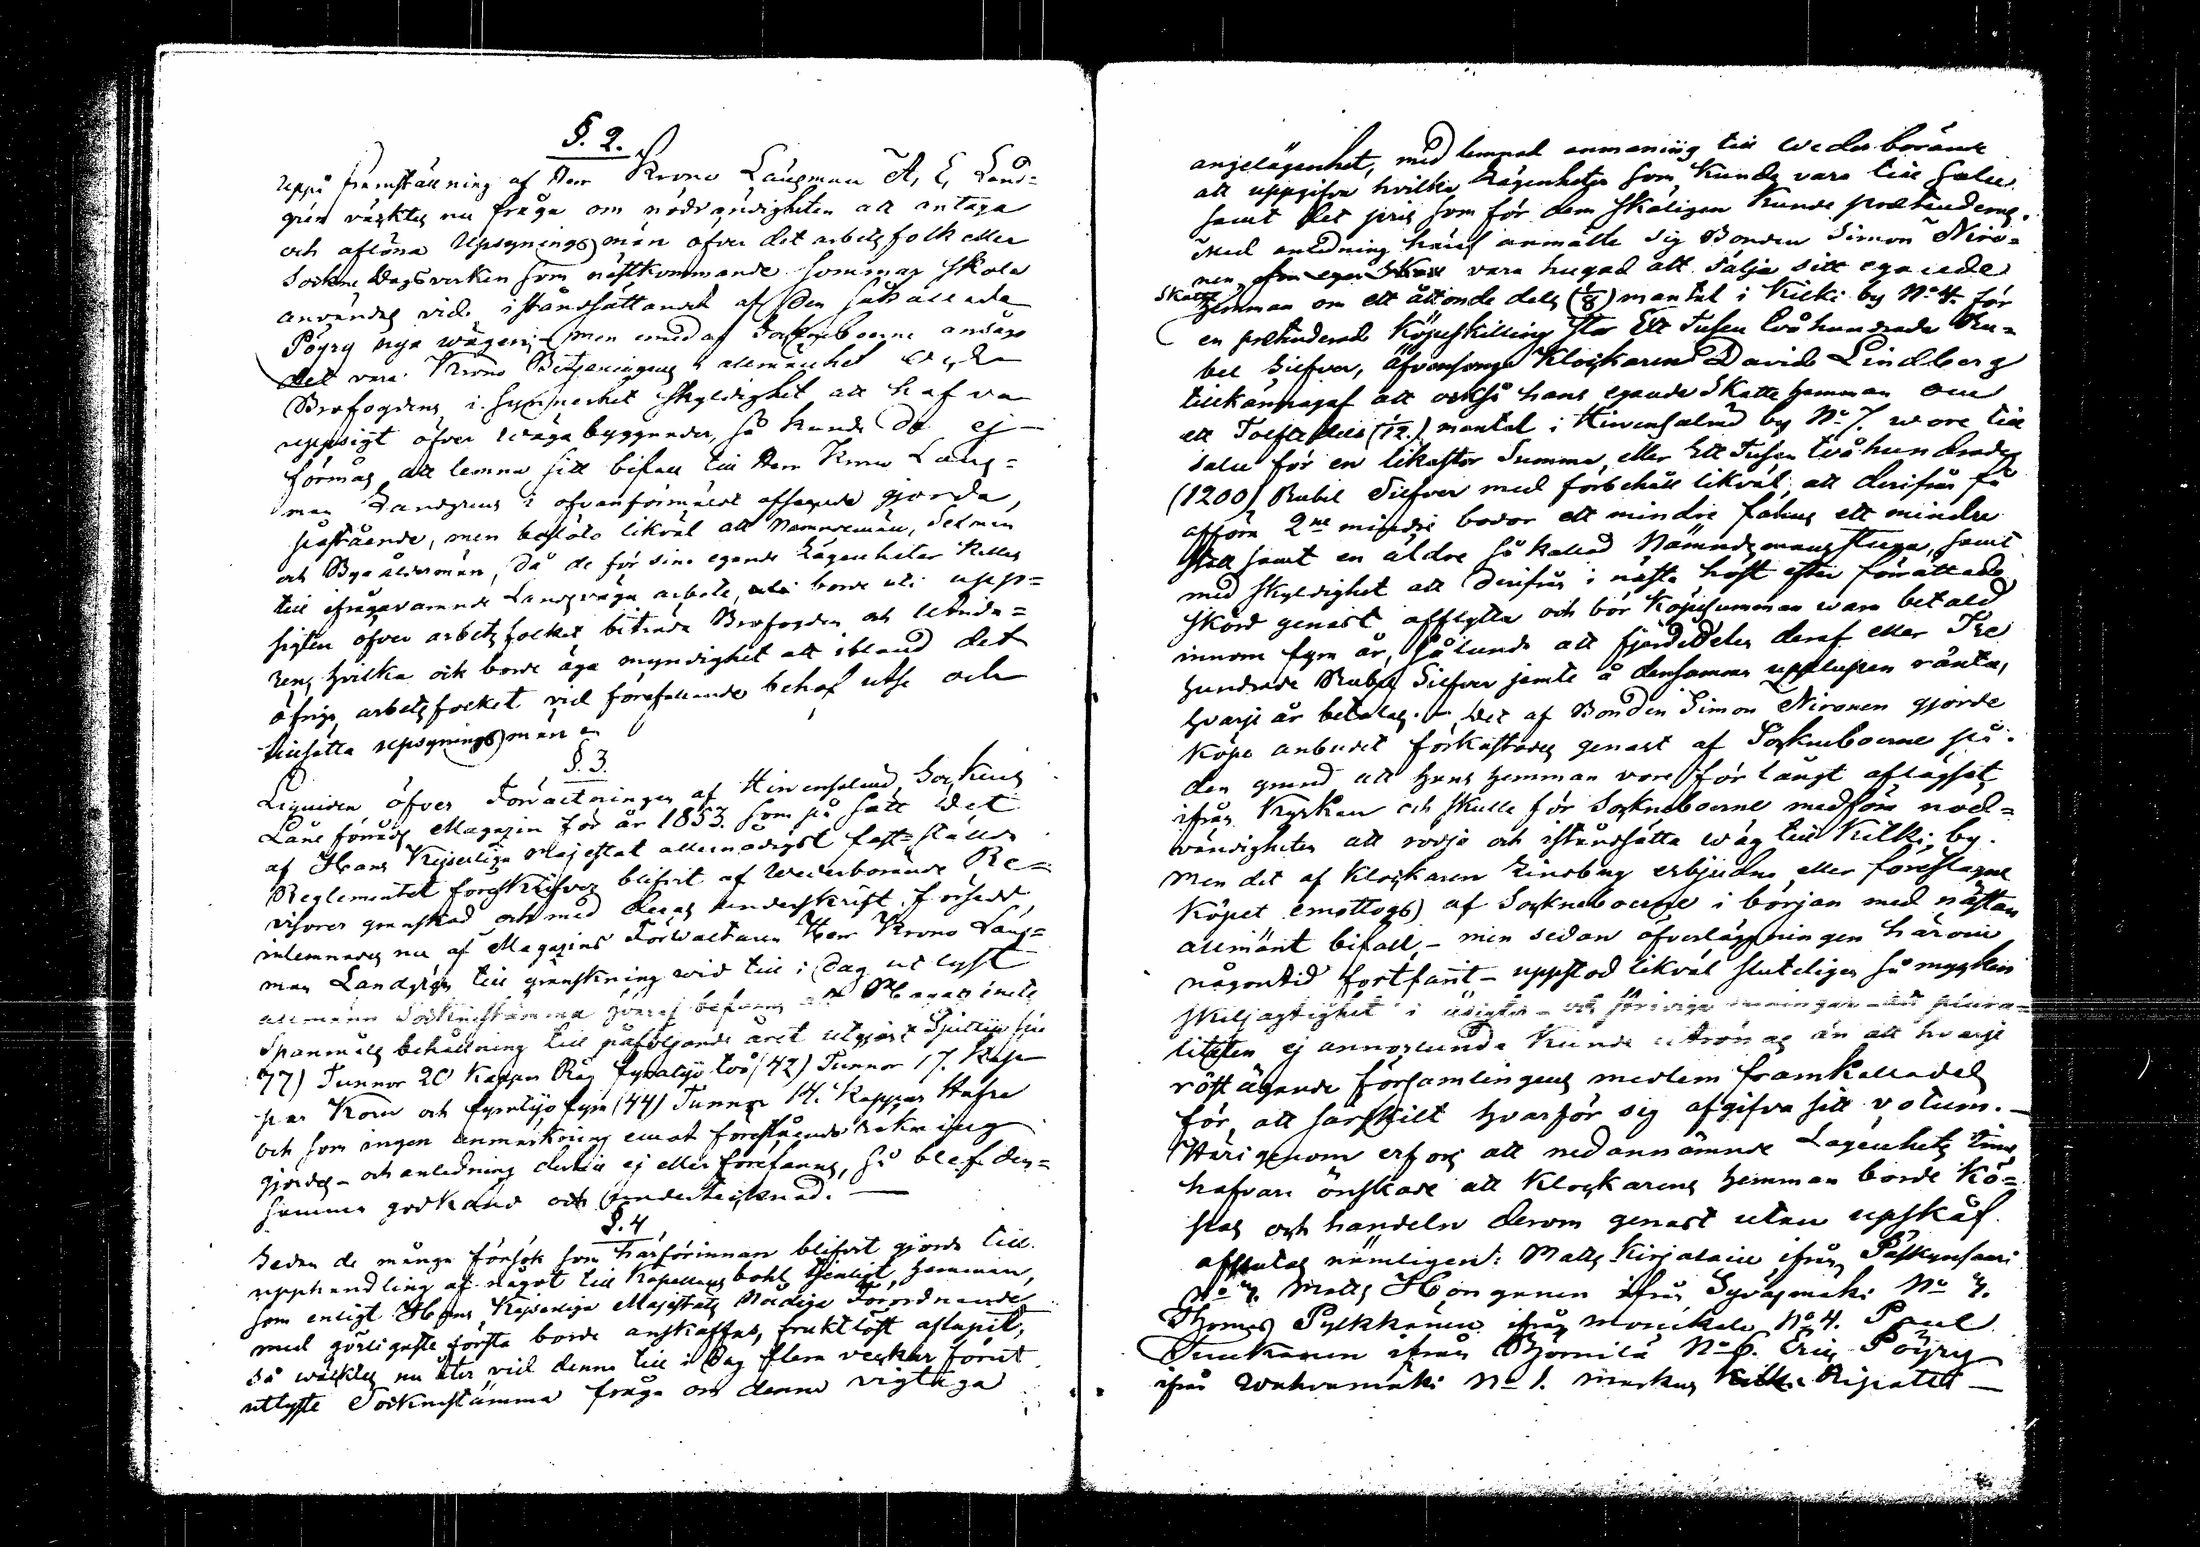 §. 2.
Uppå framställning af Herr Krono Länsman A, E, Land=
grén väcktes nu fråga om nödvändigheten att antaga
och aflöna Upsynings män öfver det arbetsfolk eller
Sockne Dagsverken som nästkommande sommar skola
användas vid iståndsättandet af den så kallade
Pöyry nya vägen; men emedan Sockneboerne ansågo
det vara Krono Betjeningens i allmänhet och
Brofogdens i synnerhet skyldighet att hafva
uppsigt öfver wäga byggnader, så kunde de ej
förmås att lemna sitt bifall till Herr Krono Läns=
man Landgrens i ofvanförmäldt afseende gjorda,
påstående, men beslöto likväl att Nämndemän, Sexmän
och Bya åldermän, då de för sine egande Lägenheter kallas
till ifrågavarande Landsväga arbete, borde uti upp=
sigten öfver arbets folket biträda Brofogden och Länsma=
nen, hvilka ock borde äga myndighet att ibland det
öfriga arbetsfolket vid förefallande behof utse och
tillsätta upsynings män
§. 3.
Liquiden öfver Förvaltningen af Hirvensalmi Sockens
Låne förråds Magazin för år 1853. som på sätt det
af Hans Kejserliga Majestät allernådigst fast=ställde
Reglementet föreskrifver blifvit af wederbörande Re=
visorer granskad och med deras underskrift försedd,
inlemnades nu af Magazins Förwaltaren Herr Krono Läns=
man Landgrén till granskning wid till i Dag utlyst
allmänn Sockenstämma hvaraf befanns att Magazinets
Spanmåls behållning till påföljande året utgjort Sjuttijo sju
77) Tunnor 20 Kappar Råg fyratijo två (42) Tunnor 17. Kap=
par Korn och fyratijo fyra (44) Tunnor 14. Kappar Hafra
och som ingen anmärkning emot föreståendе räkning
gjordes - och anledning dertill ej eller förefanns, så blef den=
samma godkänd och undertecknad. —
§. 4
Sedan de många försök som härförinnan blifvit gjorde till
upphandling af något till Kapellans bohl tjenligt, hemman,
som enligt Hans Kejserliga Majestäts Nådiga Förordnande
med görligaste första borde anskaffas, fruktlöst aflupit;
så wäcktes nu åter vid denna till i Dag flera veckar förut
utlyste Sockenstämma fråga om denna vigtiga
angelägenhet, med lemnad anmaning till wederbörande
att uppgifva hvilka Lägenheter som kunde vara till salu
samt det pris som för dem skäligen kunde prætenderas.
Med anledning häraf anmälte sig Bonden Simon Niro=
nen, vara hugad att sälja sitt egande
Skatte
Hemman om ett åttonde dels (1/8) mantal i Kilki by No 4. för
en prætenderad Köpeskilling stor Ett Tusen tvåhundrade Ru=
bel Silfver, äfvensom Klockaren David Lindberg
tillkännagaf att också hans egande Skatte hemman om
ett Tolftedels (1/12.) mantal i Hirvensalmi by No 7. wore till
salu för en lika stor Summa, eller Ett Tusen tvåhundrade
(1200) Rubel Silfver med förbehåll likväl, att derifrån få
afföra 2ne mindre bodor ett mindre fähus ett mindre
stall samt en äldre så kallad Nämndemans stuga, samt
med skyldighet att derifrån i nästa höst efter förrättade
skörd genast afflytta och bör köpesumman vara betald
innom fyra år, sålunda att fjerdedelen deraf eller Tre
hundrade Rubel Silfver jemte å densamma upplupen ränta,
hvarje år betalas. — Det af Bonden Simon Nironen gjorde
köpe anbudet förkastades genast af Socknеboerne på
den grund att hans hemman vore för långt aflägset
ifrån Kyrkan och skulle för Socknеboerne medföra nöd=
vändigheten att rödja och iståndsätta wäg till Kilki by.
Men det af Klockaren Lindberg erbjudne eller föreslagne
Köpet emottogs af Socknеboerne i början med nästan
allmänt bifall, — men sedan öfverläggningen härom
någon tid fortfarit — uppstod likväl sluteligen så mycken
skiljagtighet i åsigter — och meningar — att plura=
liteten ej annorlunda kunde utrönas än att hvarje
röst ägande församlingens medlem framkallades
för, att särskilt hvarför sig afgifva sitt votum. —
Härigenom erfors att nedannämnde Lägenhets inne
hafvare önskade att Klockarens hemman borde kö=
pas och handeln derom genast utan upskåf
afslutas nämligen: Matts Kirjalain ifrån Päskynsaari
No 7. Matts Hongonen ifrån Syväsmäki No 3.
Thomas Pylkkänen ifrån No 4. Paul
Tuukkanen ifrån Björnilä No 6. Eric Pöyry
ifrån Wahvamäki No 1. Markus Ripatti —